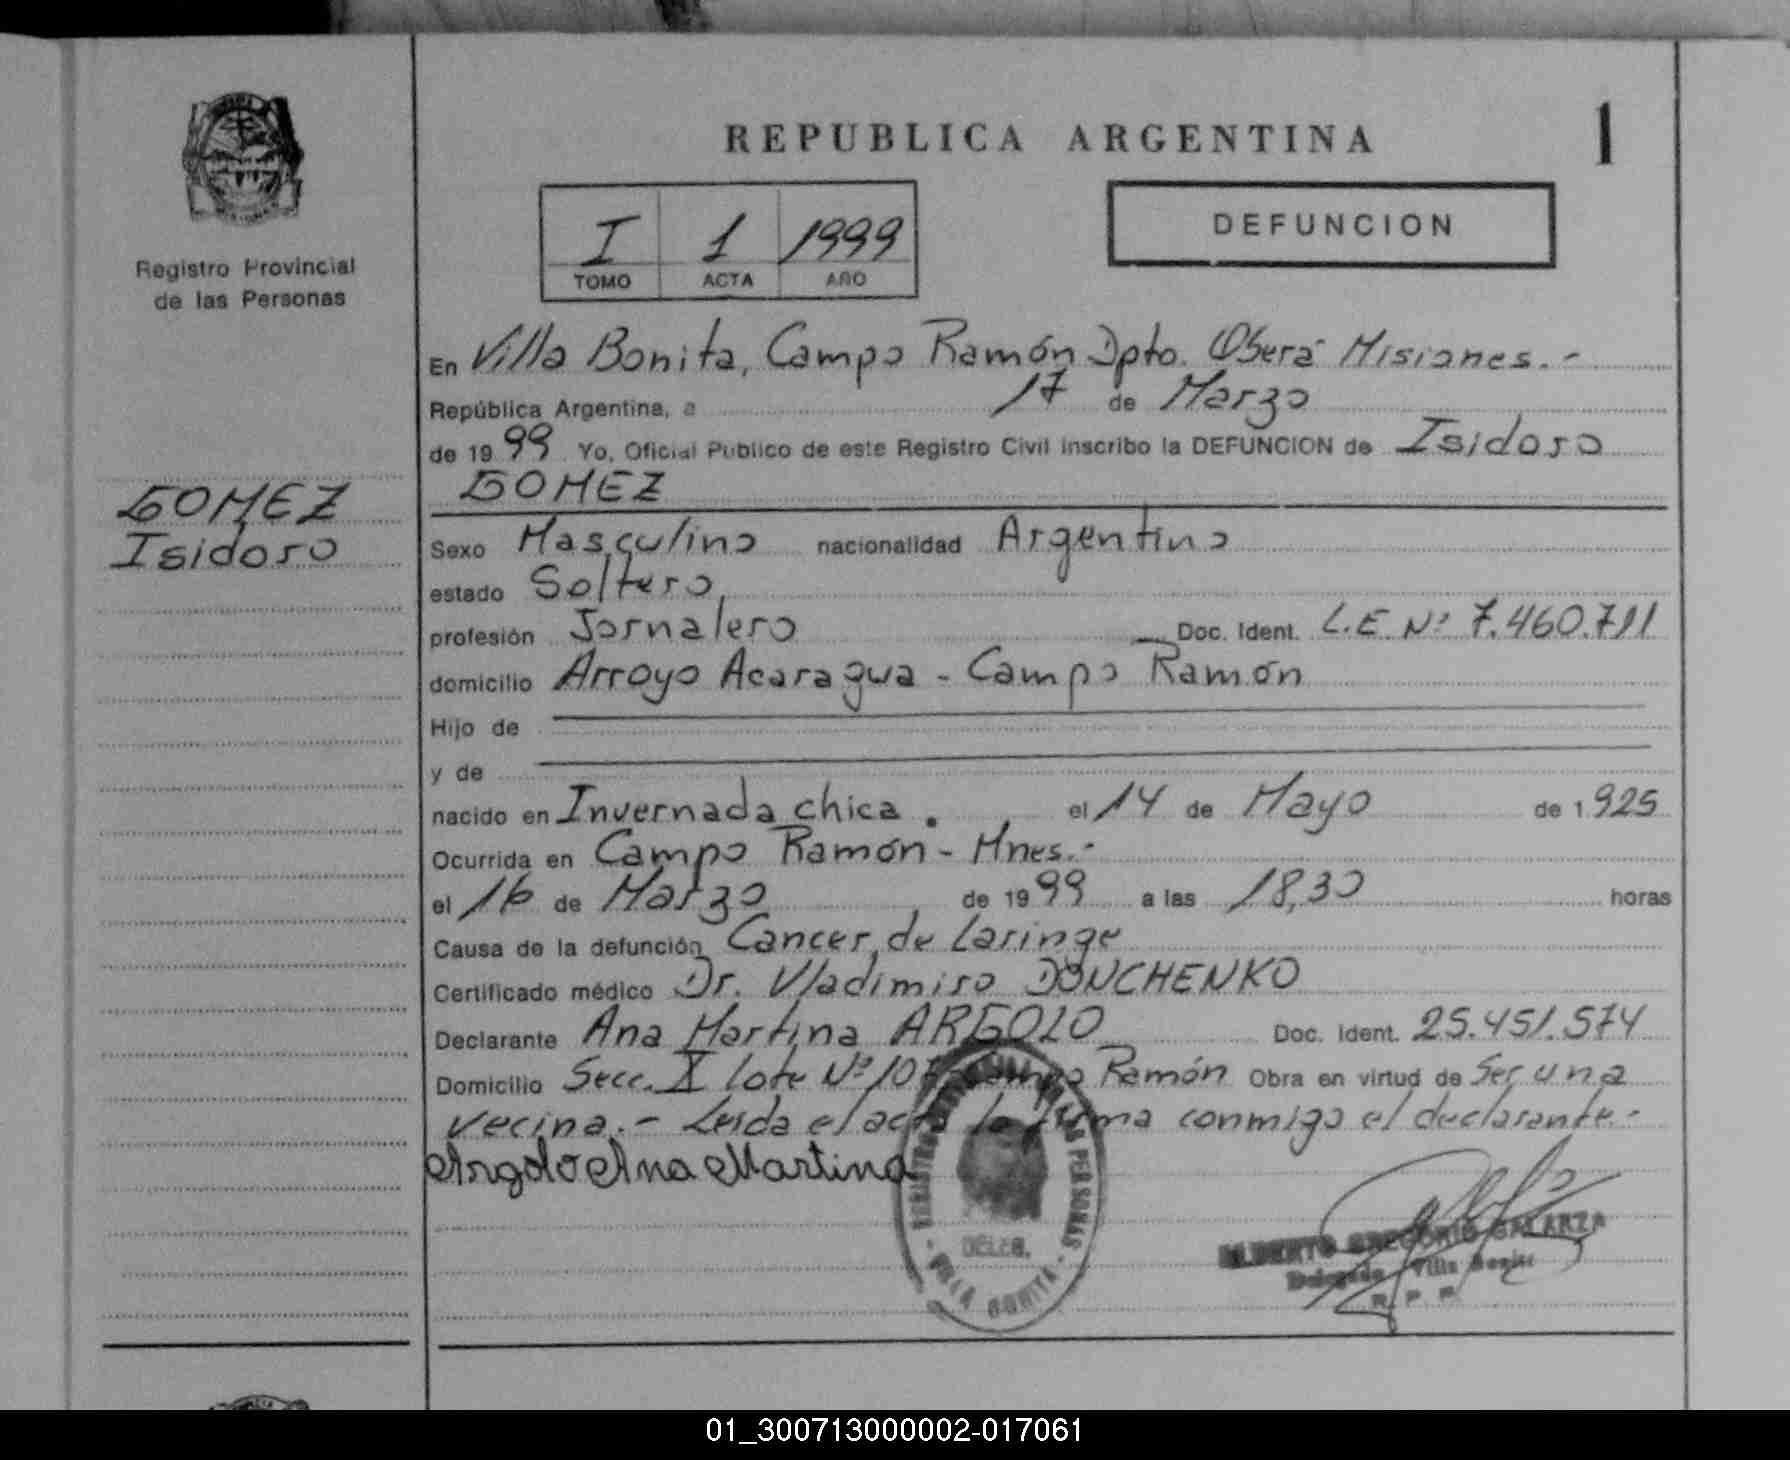 REPUBLICA ARGENTINA
1
Registro Provincial
de las Personas
I 1 1999
TOMO ACTA AÑO
DEFUNCION
GOMEZ
Isidoro
En Villa Bonita, Campo Ramón Dpto. Oberá Misiones.-
República Argentina, a 17 de Marzo
de 1999 Yo, Oficial Publico de este Registro Civil inscribo la DEFUNCION de Isidoro
GOMEZ
Sexo Masculino nacionalidad Argentino
estado Soltero
profesión Jornalero Doc. Ident. L.E. Nº 7.460.711
domicilio Arroyo Acaragua - Campo Ramón
Hijo de
y de
nacido en Invernada chica. el 14 de Mayo de 1925
Ocurrida en Campo Ramón - Mnes.-
el 16 de Marzo de 1999 a las 18,30 horas
Causa de la defunción Cancer de Laringe
Certificado médico Dr. Vladimiro DONCHENKO
Declarante Ana Martina ARGOLO Doc. Ident. 25.451.574
Domicilio Secc. X lote Nº Campo Ramón Obra en virtud de Ser una
vecina.- Leida el acta la firma conmigo el declarante.-
Argolo Ana Martina
PERSONAS
DELEG.
VILLA BONITA
ALBERTO GREGORIO GALARZA
Delegado Villa Bonita
R. P. P.
01_300713000002-017061